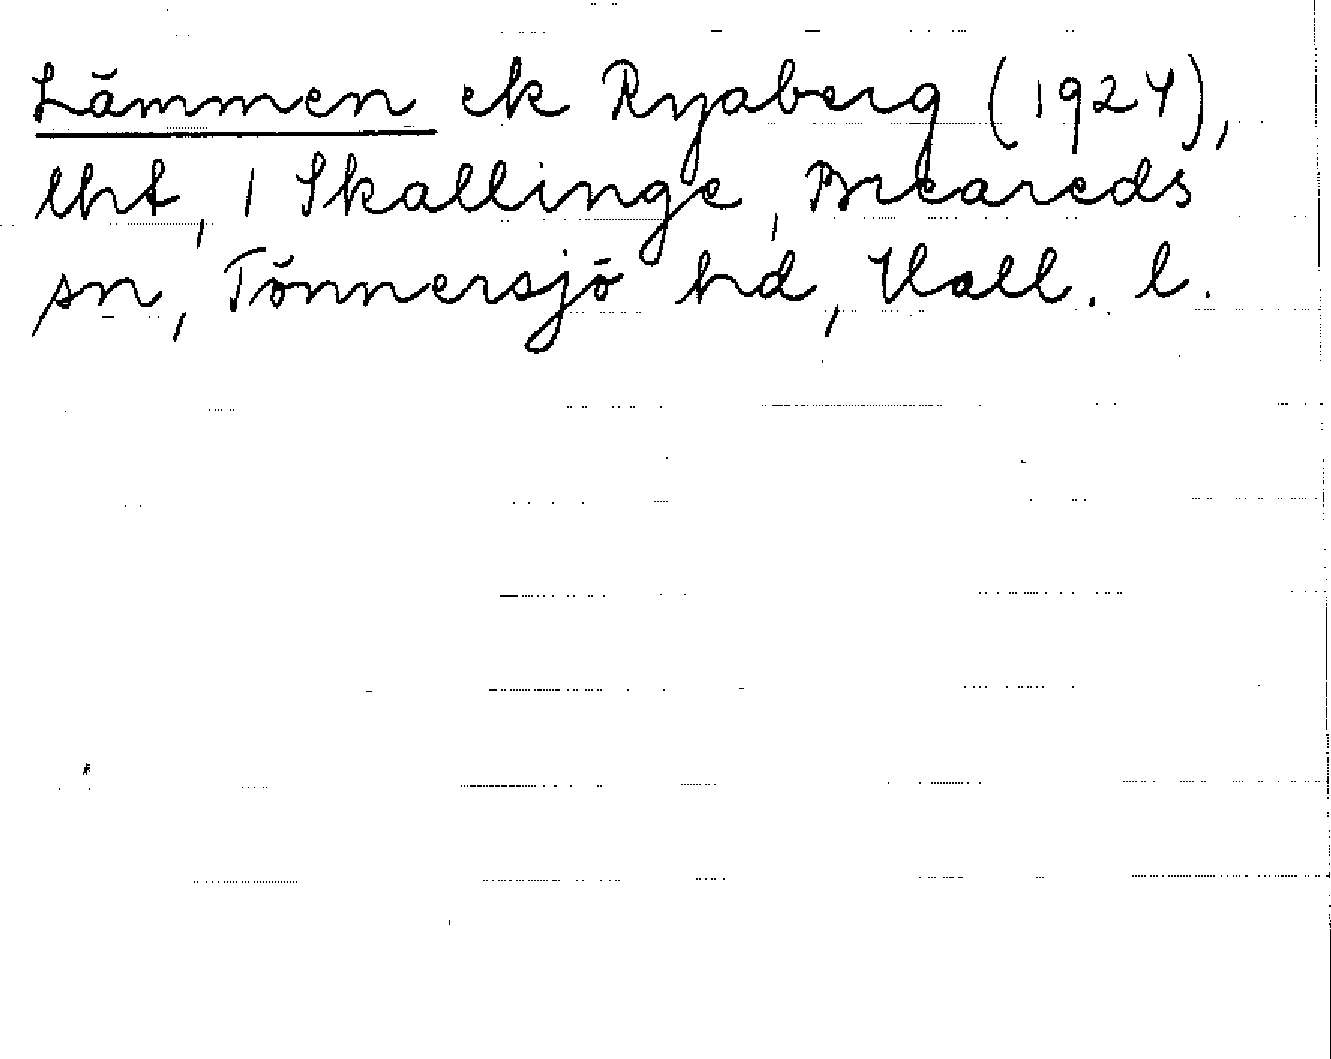 Lämmen ek Ryaberg (1924),
lht, 1 Skallinge, Breareds
sn, Tönnersjö hd, Hall. l.